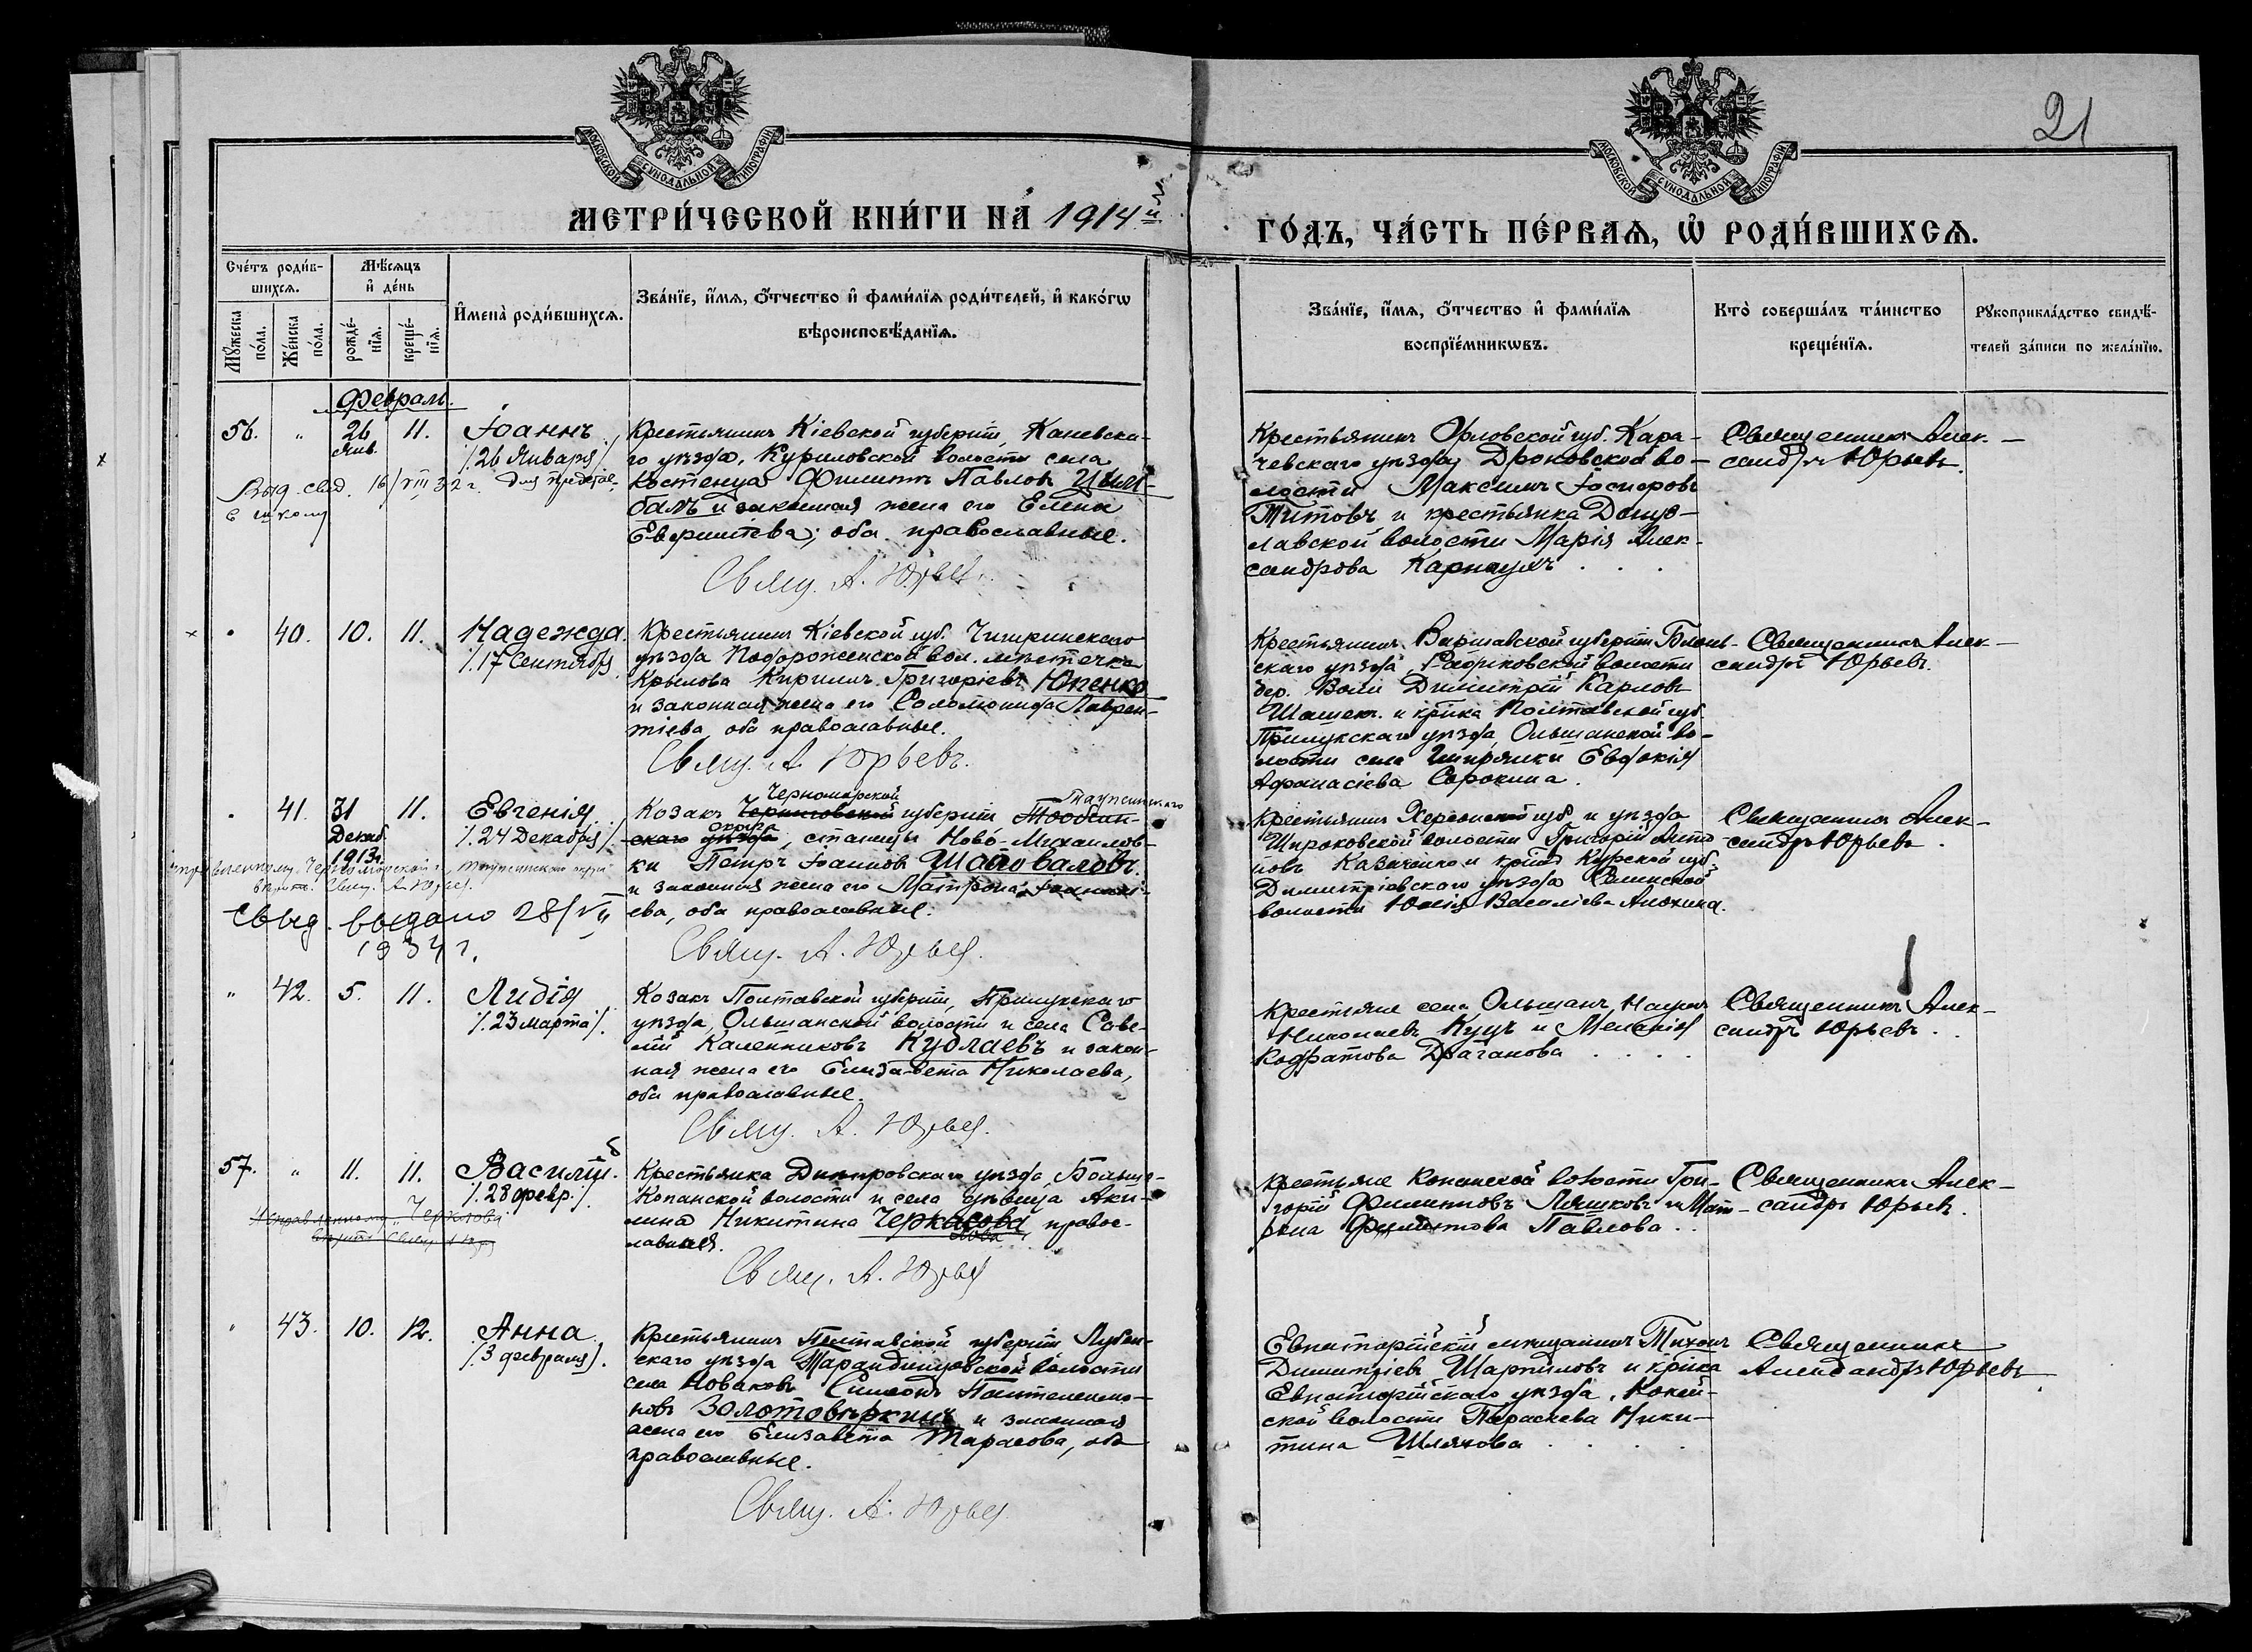 21
МОСКОВСКОЙ СѴНОДАЛЬНОЙ ТИПОГРАФІИ
МОСКОВСКОЙ СѴНОДАЛЬНОЙ ТИПОГРАФІИ
МЕТРИ́ЧЕСКОЙ КНИ́ГИ НА́ 1914й
ГО́ДЪ, ЧА́СТЬ ПЕ́РВАѦ, Ѡ҆ РОДИ́ВШИХСѦ.
Сче́тъ роди́в-
шихсѧ.
Мѣ́сѧцъ
и҆ де́нь
Мꙋ́жеска по́ла.
Же́нска по́ла.
рожде́-нїѧ.
креще́-нїѧ.
И҆мена̀ роди́вшихсѧ.
Зва́нїе, и҆́мѧ, ѻ҆́тчество и҆ фами́лїѧ роди́телей, и҆ како́гѡ
вѣроисповѣ́данїѧ.
Зва́нїе, и҆́мѧ, ѻ҆́тчество и҆ фами́лїѧ
воспрїе́мникѡвъ.
Кто̀ соверша́лъ та́инство
креще́нїѧ.
Рꙋкоприкла́дство свидѣ́-
телей за́писи по жела́нїю.
Февраль.
56. " 26 Янв. 11. Іоаннъ
/.26 Января/.
Выд. свид. 16/VIII 32 г. для представ.
в школу
Крестьянинъ Кіевской губерніи, Каневска-
го уѣзда, Куриловской волости села
Костенца Филиппъ Павловъ Цым-
балъ и законная жена его Елена
Евфиміева; оба православные.
Свящ. А. Юрьевъ.
Крестьянинъ Орловской губ. Кара-
чевскаго уѣзда, Дроновской во-
лости Максимъ Іосифовъ
Титовъ и крестьянка Донуз-
лавской волости Марія Алек-
сандрова Карнаухъ.
Священникъ Алек-
сандръ Юрьевъ.
" 40. 10. 11. Надежда.
/.17 Сентября/.
Крестьянинъ Кіевской губ. Чигиринскаго
уѣзда Подорожненской вол. мѣстечка
Крылова Кириллъ Григоріевъ Юпенко
и законная жена его Соломонида Лаврен-
тіева, оба православные.
Свящ. А. Юрьевъ.
Крестьянинъ Варшавской губерніи Блон-
скаго уѣзда Радиковской волости
дер. Воли Димитрій Карловъ
Шашек. и кр-ка Полтавской губ.
Прилукскаго уѣзда Ольшанской во-
лости села Евдокія
Афанасіева Сорокина.
Священникъ Алек-
сандръ Юрьевъ.
" 41. 31 Декаб. 1913 г. 11. Евгенія.
/.24 Декабря/.
Исправленному: Черноморской г., Туапсинскаго округа
вѣрить. Свящ. А. Юрьев.
Свид. выдано 28/VII
1934 г.
Черноморской Туапсинскаго
Козакъ Черниговской губерніи
округа
скаго уѣзда, станицы Ново-Михайлов-
ки Петръ Іоанновъ Шаповаловъ
и законная жена его Матрона
ева, оба православные.
Свящ. А. Юрьев.
Крестьянинъ Херсонской губ. и уѣзда
Широковской волости Григорій Анто-
новъ Казаченко и кр-ка Курской губ.
Димитріевскаго уѣзда
волости Юлія Васильева Анохина.
Священникъ Алек-
сандръ Юрьевъ.
" 42. 5. 11. Лидія
/.23 марта/.
Козакъ Полтавской губерніи, Прилукскаго
уѣзда, Ольшанской волости и села Саве-
лій Каленниковъ Кудлаевъ и закон-
ная жена его Елизавета Николаева,
оба православные.
Свящ. А. Юрьев.
Крестьяне села Ольшанъ, Наумъ
Николаевъ Куцъ и Меланія
Кодратова Драганова
Священникъ Алек-
сандръ Юрьевъ.
57. " 11. 11. Василій.
/.28 февр./.
Исправленному „Черкасова
вѣрить. Свящ. А. Юр.
Крестьянка Днѣпровскаго уѣзда, Больше-
Копанской волости и села дѣвица Аки-
лина Никитина Черкасова, правос-
лавная.
Свящ. А. Юрьев
Крестьяне Копанской волости Гри-
горій Филипповъ Ляшковъ и Мат-
рона Филиппова Павлова.
Священникъ Алек-
сандръ Юрьевъ.
" 43. 10. 12. Анна
/.3 февраля/.
Крестьянинъ Полтавской губерніи Лубен-
скаго уѣзда Тарандинцовской волости
села Новаковъ Симеонъ Пантелеимо-
новъ Золотовѣркинъ и законная
жена его Елизавета Тарасова, оба
православные.
Свящ. А. Юрьев
Евпаторійскій мѣщанинъ Тихонъ
Димитріевъ Шарпиловъ и кр-ка
Евпаторійскаго уѣзда,
ской волости Параскева Ники-
тина Шляхова
Священникъ
Александръ Юрьевъ